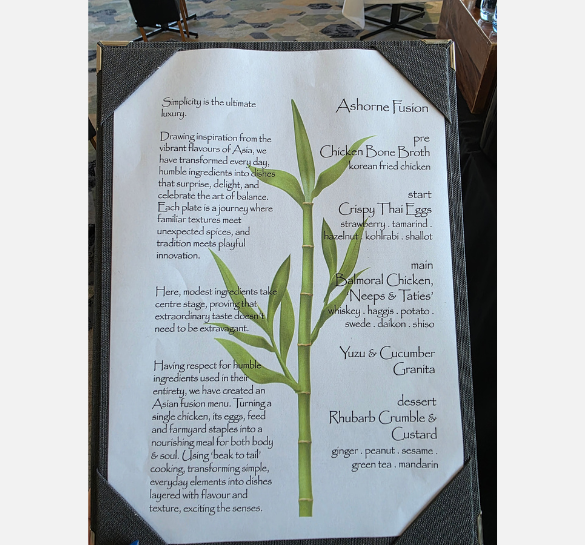 Simplicity is the ultimate
luxury.
Drawing inspiration from the
vibrant flavours of Asia, we
have transformed every day,
humble ingredients into dishes
that surprise, delight, and
celebrate the art of balance.
Each plate is a journey where
familiar textures meet
unexpected spices, and
tradition meets playful
innovation.
Here, modest ingredients take
centre stage, proving that
extraordinary taste doesn't
need to be extravagant.
Having respect for humble
ingredients used in their
entirety, we have created an
Asian fusion menu. Turning a
single chicken, its eggs, feed
and farmyard staples into a
nourishing meal for both body
& soul. Using 'beak to tail'
cooking, transforming simple,
everyday elements into dishes
layered with flavour and
texture, exciting the senses.
Ashorne Fusion
pre
Chicken Bone Broth
korean fried chicken
start
Crispy Thai Eggs
strawberry . tamarind .
hazelnut . kohlrabi . shallot
main
Balmoral Chicken,
'Neeps & Taties'
whiskey . haggis . potato .
swede . daikon . shiso
Yuzu & Cucumber
Granita
dessert
Rhubarb Crumble &
Custard
ginger . peanut . sesame .
green tea . mandarin